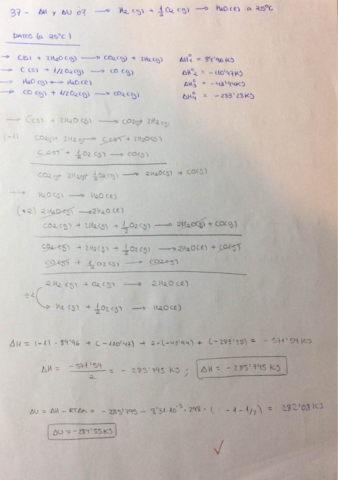 37- ΔH y ΔU de? → H₂(g) + ½O₂(g) → H₂O(l) a 25ºC
DATOS (a 25ºC)
→ C(s) + 2H₂O(g) → CO₂(g) + 2H₂(g) ΔHº₁ =
→ C(s) + 1/2O₂(g) → CO(g) ΔHº₂ = -110'47KJ
→ H₂O(g) → H₂O(l) ΔHº₃ = KJ
→ CO(g) + 1/2O₂(g) → CO₂(g) ΔHº₄ = KJ
→ C(s) + 2H₂O(g) → CO₂(g) + 2H₂(g)
(-1) CO₂(g) + 2H₂(g) → C(s) + 2H₂O(g)
C(s) + ½O₂(g) → CO(g)
CO₂(g) + 2H₂(g) + ½O₂(g) → 2H₂O(g) + CO(g)
→ H₂O(g) → H₂O(l)
(·2) 2H₂O(g) → 2H₂O(l)
CO₂(g) + 2H₂(g) + ½O₂(g) → 2H₂O(g) + CO(g)
CO₂(g) + 2H₂(g) + ½O₂(g) → 2H₂O(l) + CO(g)
CO(g) + ½O₂(g) → CO₂(g)
2H₂(g) + O₂(g) → 2H₂O(l)
÷2
H₂(g) + ½O₂(g) → H₂O(l)
ΔH = (-1) · + (-110'47) + 2·( ) + ( ) = -571'59
ΔH = -571'59 / 2 = -285'795 KJ ; ΔH = -285'795 KJ
ΔU = ΔH - RTΔn = -285'795 - 8'31·10⁻³ · 298 · (-1 - 1/2) = 282'08KJ
ΔU =